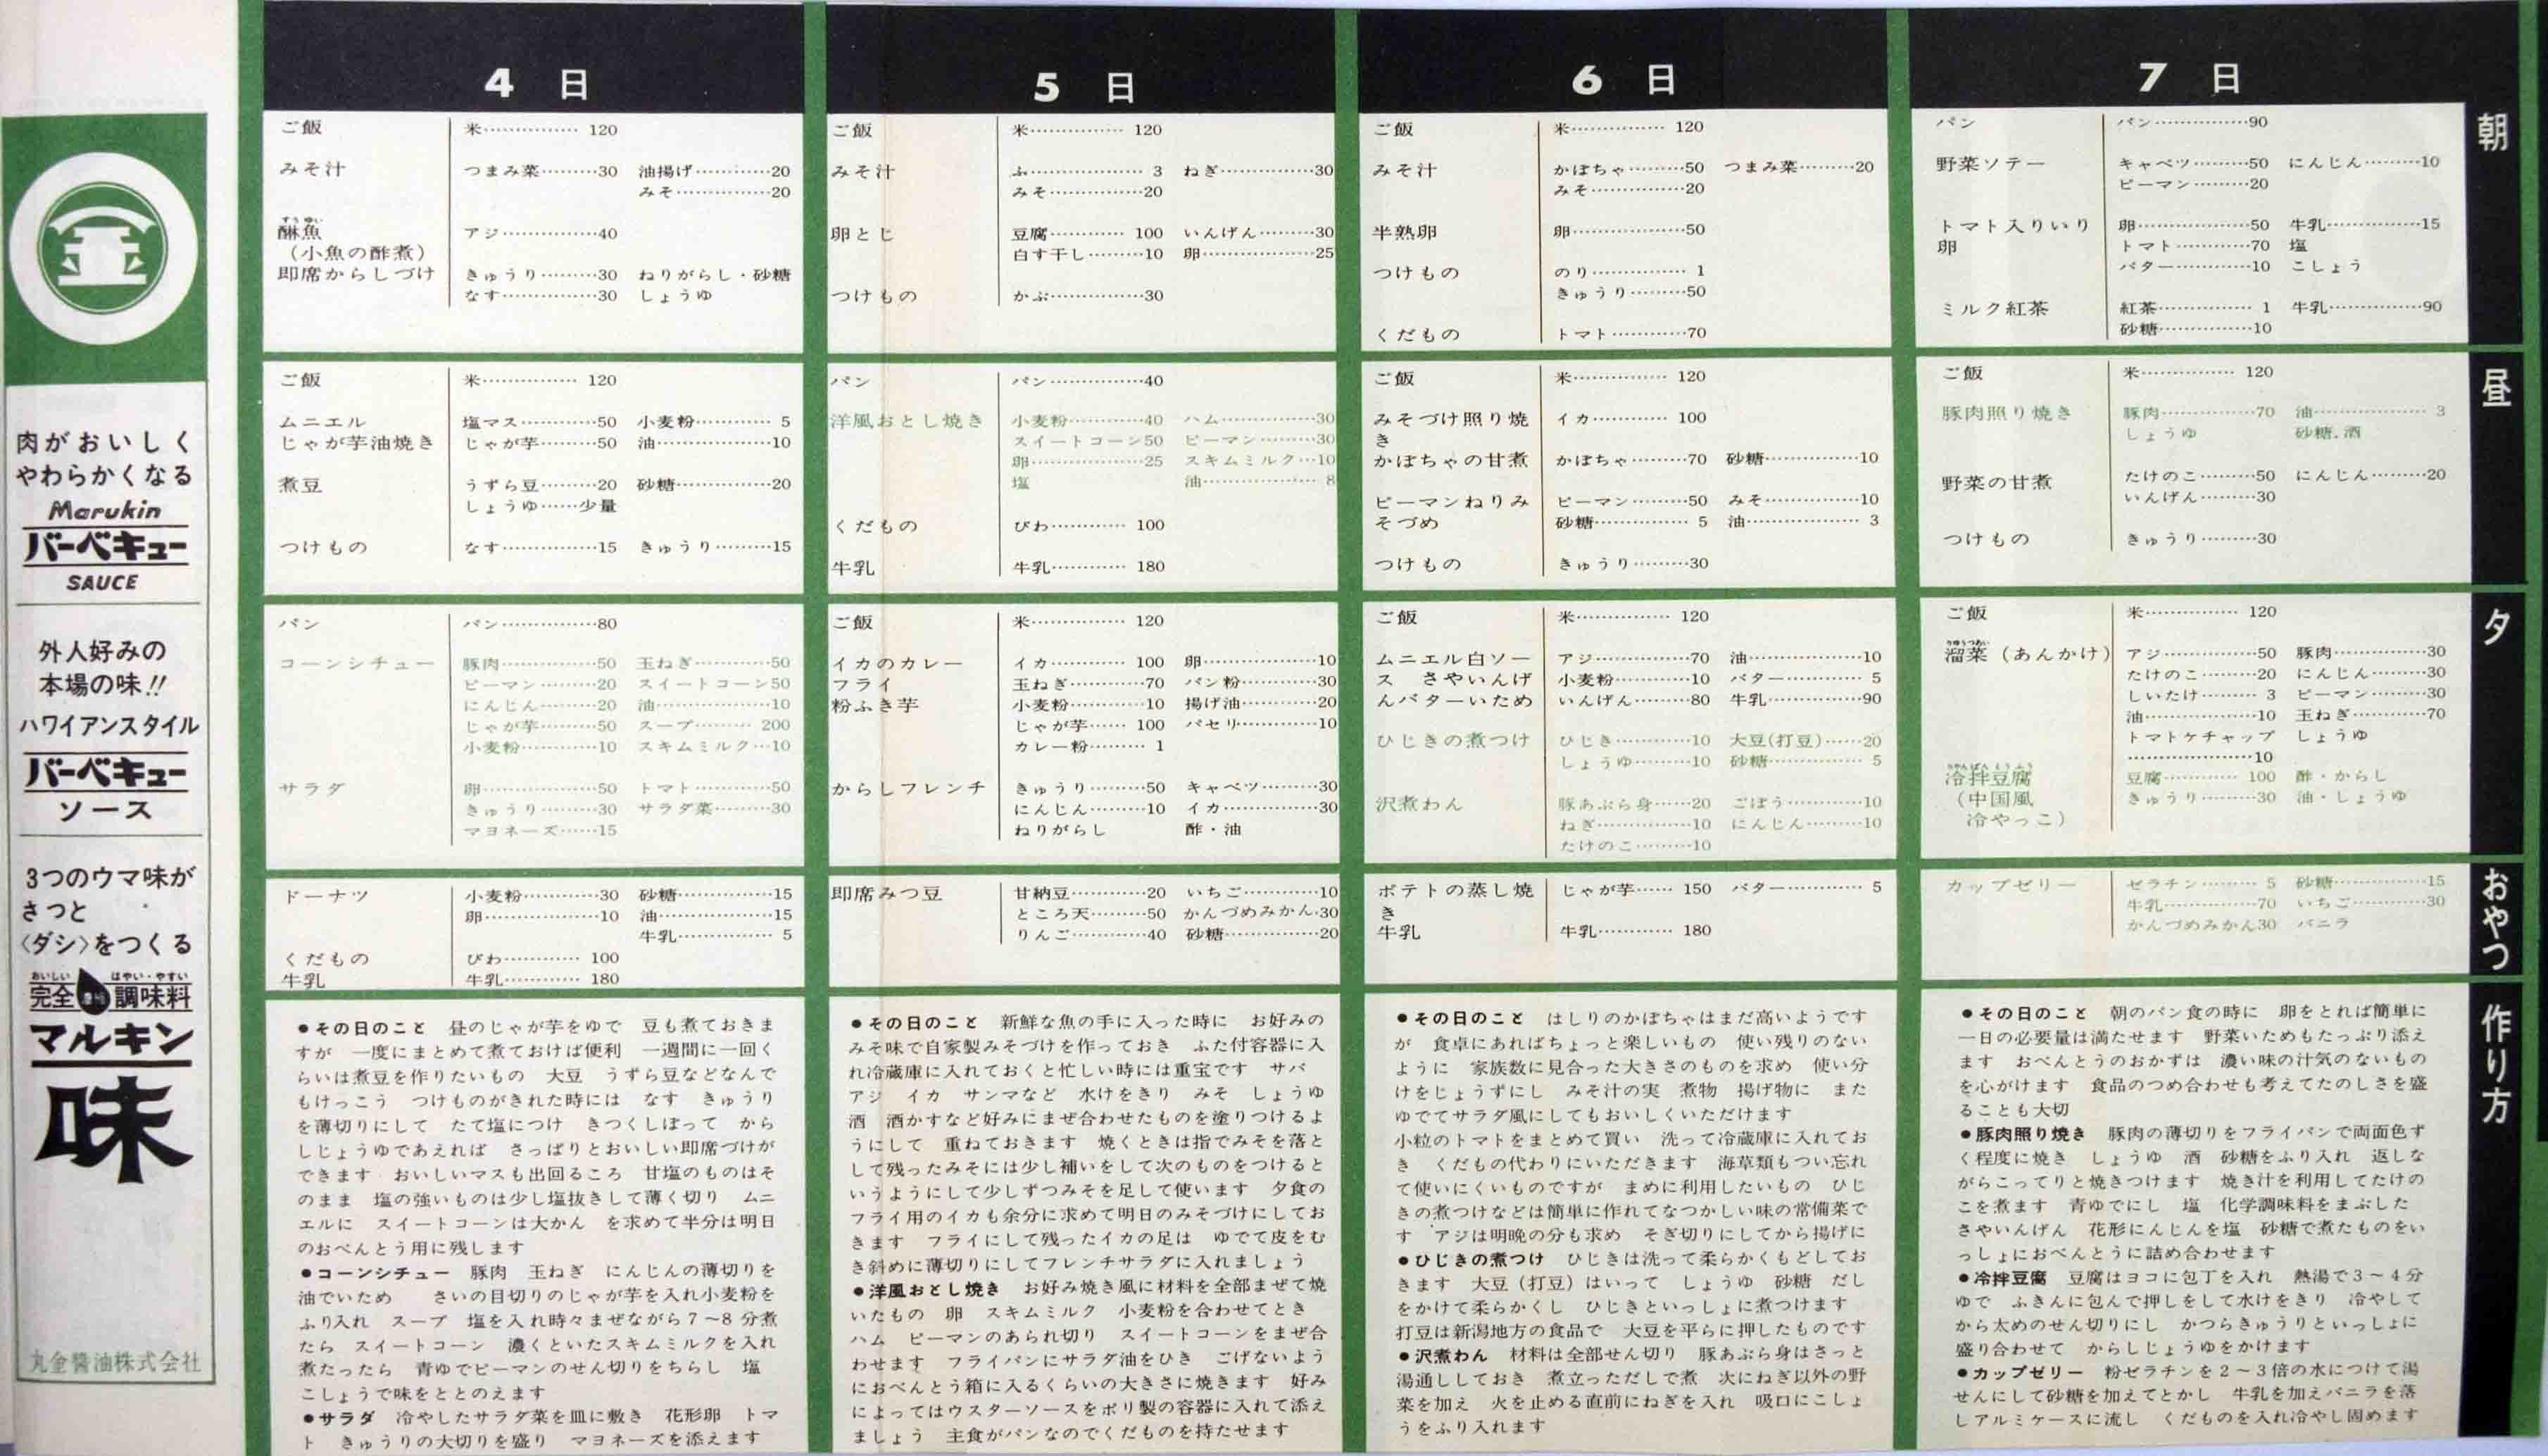 肉がおいしく
やわらかくなる
Marukin
バーベキュー
SAUCE
外人好みの
本場の味!!
ハワイアンスタイル
バーベキュー
ソース
3つのウマ味が
さっと
〈ダシ〉をつくる
おいしい はやい・やすい
完全 調味料
マルキン
味
丸金醤油株式会社
4 日
ご飯 米…………… 120
みそ汁 つまみ菜………30 油揚げ…………20
みそ……………20
すう ゆい
醂魚 アジ……………40
(小魚の酢煮)
即席からしづけ きゅうり………30 ねりがらし・砂糖
なす……………30 しょうゆ
ご飯 米…………… 120
ムニエル 塩マス…………50 小麦粉………… 5
じゃが芋油焼き じゃが芋………50 油………………10
煮豆 うずら豆………20 砂糖……………20
しょうゆ……少量
つけもの なす……………15 きゅうり………15
パン パン……………80
コーンシチュー 豚肉……………50 玉ねぎ…………50
ピーマン………20 スイートコーン50
にんじん………20 油………………10
じゃが芋………50 スープ……… 200
小麦粉…………10 スキムミルク…10
サラダ 卵………………50 トマト…………50
きゅうり………30 サラダ菜………30
マヨネーズ……15
ドーナツ 小麦粉…………30 砂糖……………15
卵………………10 油………………15
牛乳…………… 5
くだもの びわ………… 100
牛乳 牛乳………… 180
●その日のこと 昼のじゃが芋をゆで 豆も煮ておきま
すが 一度にまとめて煮ておけば便利 一週間に一回く
らいは煮豆を作りたいもの 大豆 うずら豆などなんで
もけっこう つけものがきれた時には なす きゅうり
を薄切りにして たて塩につけ きつくしぼって から
しじょうゆであえれば さっぱりとおいしい即席づけが
できます おいしいマスも出回るころ 甘塩のものはそ
のまま 塩の強いものは少し塩抜きして薄く切り ムニ
エルに スイートコーンは大かん を求めて半分は明日
のおべんとう用に残します
●コーンシチュー 豚肉 玉ねぎ にんじんの薄切りを
油でいため さいの目切りのじゃが芋を入れ小麦粉を
ふり入れ スープ 塩を入れ時々まぜながら7〜8分煮
たら スイートコーン 濃くといたスキムミルクを入れ
煮たったら 青ゆでピーマンのせん切りをちらし 塩
こしょうで味をととのえます
●サラダ 冷やしたサラダ菜を皿に敷き 花形卵 トマ
ト きゅうりの大切りを盛り マヨネーズを添えます
5 日
ご飯 米…………… 120
みそ汁 ふ……………… 3 ねぎ……………30
みそ……………20
卵とじ 豆腐………… 100 いんげん………30
白す干し………10 卵………………25
つけもの かぶ……………30
パン パン……………40
洋風おとし焼き 小麦粉…………40 ハム……………30
スイートコーン50 ピーマン………30
卵………………25 スキムミルク…10
塩 油……………… 8
くだもの びわ………… 100
牛乳 牛乳………… 180
ご飯 米…………… 120
イカのカレー イカ………… 100 卵………………10
フライ 玉ねぎ…………70 パン粉…………30
粉ふき芋 小麦粉…………10 揚げ油…………20
じゃが芋…… 100 パセリ…………10
カレー粉……… 1
からしフレンチ きゅうり………50 キャベツ………30
にんじん………10 イカ……………30
ねりがらし 酢・油
即席みつ豆 甘納豆…………20 いちご…………10
ところ天………50 かんづめみかん・30
りんご…………40 砂糖……………20
●その日のこと 新鮮な魚の手に入った時に お好みの
みそ味で自家製みそづけを作っておき ふた付容器に入
れ冷蔵庫に入れておくと忙しい時には重宝です サバ
アジ イカ サンマなど 水けをきり みそ しょうゆ
酒 酒かすなど好みにまぜ合わせたものを塗りつけるよ
うにして 重ねておきます 焼くときは指でみそを落と
して残ったみそには少し補いをして次のものをつけると
いうようにして少しずつみそを足して使います 夕食の
フライ用のイカも余分に求めて明日のみそづけにしてお
きます フライにして残ったイカの足は ゆでて皮をむ
き斜めに薄切りにしてフレンチサラダに入れましょう
●洋風おとし焼き お好み焼き風に材料を全部まぜて焼
いたもの 卵 スキムミルク 小麦粉を合わせてとき
ハム ピーマンのあられ切り スイートコーンをまぜ合
わせます フライパンにサラダ油をひき こげないよう
におべんとう箱に入るくらいの大きさに焼きます 好み
によってはウスターソースをポリ製の容器に入れて添え
ましょう 主食がパンなのでくだものを持たせます
6 日
ご飯 米…………… 120
みそ汁 かぼちゃ………50 つまみ菜………20
みそ……………20
半熟卵 卵………………50
つけもの のり…………… 1
きゅうり………50
くだもの トマト…………70
ご飯 米…………… 120
みそづけ照り焼 イカ………… 100
き
かぼちゃの甘煮 かぼちゃ………70 砂糖……………10
ピーマンねりみ ピーマン………50 みそ……………10
そづめ 砂糖…………… 5 油……………… 3
つけもの きゅうり………30
ご飯 米…………… 120
ムニエル白ソー アジ……………70 油………………10
ス さやいんげ 小麦粉…………10 バター………… 5
んバターいため いんげん………80 牛乳……………90
ひじきの煮つけ ひじき…………10 大豆(打豆)……20
しょうゆ………10 砂糖…………… 5
沢煮わん 豚あぶら身……20 ごぼう…………10
ねぎ……………10 にんじん………10
たけのこ………10
ポテトの蒸し焼 じゃが芋…… 150 バター………… 5
き
牛乳 牛乳………… 180
●その日のこと はしりのかぼちゃはまだ高いようです
が 食卓にあればちょっと楽しいもの 使い残りのない
ように 家族数に見合った大きさのものを求め 使い分
けをじょうずにし みそ汁の実 煮物 揚げ物に また
ゆでてサラダ風にしてもおいしくいただけます
小粒のトマトをまとめて買い 洗って冷蔵庫に入れてお
き くだもの代わりにいただきます 海草類もつい忘れ
て使いにくいものですが まめに利用したいもの ひじ
きの煮つけなどは簡単に作れてなつかしい味の常備菜で
す アジは明晩の分も求め そぎ切りにしてから揚げに
●ひじきの煮つけ ひじきは洗って柔らかくもどしてお
きます 大豆(打豆)はいって しょうゆ 砂糖 だし
をかけて柔らかくし ひじきといっしょに煮つけます
打豆は新潟地方の食品で 大豆を平らに押したものです
●沢煮わん 材料は全部せん切り 豚あぶら身はさっと
湯通ししておき 煮立っただしで煮 次にねぎ以外の野
菜を加え 火を止める直前にねぎを入れ 吸口にこしょ
うをふり入れます
7 日
パン パン……………90
野菜ソテー キャベツ………50 にんじん………10
ピーマン………20
トマト入りいり 卵………………50 牛乳……………15
卵 トマト…………70 塩
バター…………10 こしょう
ミルク紅茶 紅茶…………… 1 牛乳……………90
砂糖……………10
ご飯 米…………… 120
豚肉照り焼き 豚肉……………70 油……………… 3
しょうゆ 砂糖.酒
野菜の甘煮 たけのこ………50 にんじん………20
いんげん………30
つけもの きゅうり………30
ご飯 米…………… 120
りゅうつぁい
溜菜(あんかけ) アジ……………50 豚肉……………30
たけのこ………20 にんじん………30
しいたけ……… 3 ピーマン………30
油………………10 玉ねぎ…………70
トマトケチャップ しょうゆ
…………………10
冷拌豆腐 豆腐………… 100 酢・からし
(中国風 きゅうり………30 油・しょうゆ
冷やっこ)
カップゼリー ゼラチン……… 5 砂糖……………15
牛乳……………70 いちご…………30
かんづめみかん30 バニラ
●その日のこと 朝のパン食の時に 卵をとれば簡単に
一日の必要量は満たせます 野菜いためもたっぷり添え
ます おべんとうのおかずは 濃い味の汁気のないもの
を心がけます 食品のつめ合わせも考えてたのしさを盛
ることも大切
●豚肉照り焼き 豚肉の薄切りをフライパンで両面色ず
く程度に焼き しょうゆ 酒 砂糖をふり入れ 返しな
がらこってりと焼きつけます 焼き汁を利用してたけの
こを煮ます 青ゆでにし 塩 化学調味料をまぶした
さやいんげん 花形にんじんを塩 砂糖で煮たものをい
っしょにおべんとうに詰め合わせます
●冷拌豆腐 豆腐はヨコに包丁を入れ 熱湯で3〜4分
ゆで ふきんに包んで押しをして水けをきり 冷やして
から太めのせん切りにし かつらきゅうりといっしょに
盛り合わせて からしじょうゆをかけます
●カップゼリー 粉ゼラチンを2〜3倍の水につけて湯
せんにして砂糖を加えてとかし 牛乳を加えバニラを落
しアルミケースに流し くだものを入れ冷やし固めます
朝
昼
夕
おやつ
作り方